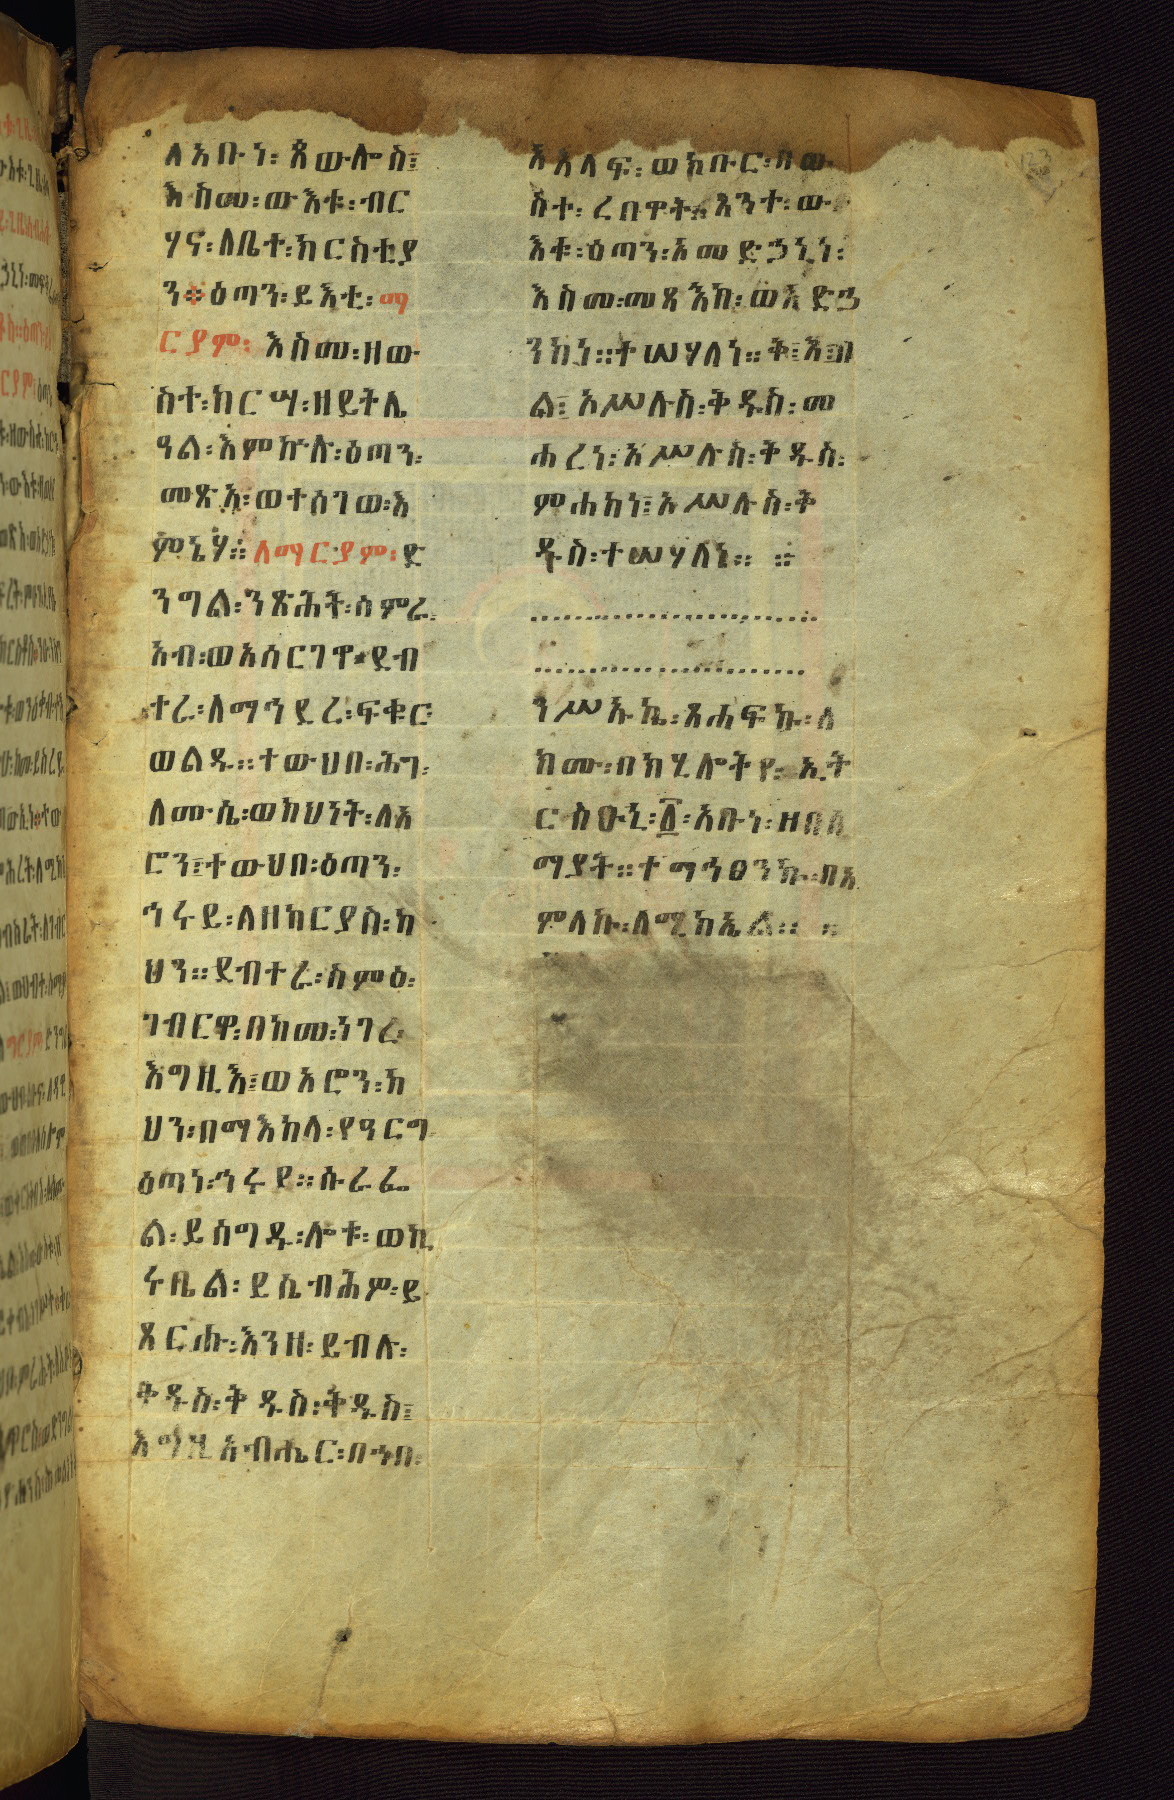 ለአቡነ፡ ጳውሎስ፤
እስመ፡ውእቱ፡ብር
ሃና፡ለቤተ፡ክርስቲያ
ን፨ዕጣን፡ይእቲ፡ማ
ርያም፡ እስመ፡ዘው
ስተ፡ከርሣ፡ዘይትሌ
ዓል፡እምኵሉ፡ዕጣን፡
መጽአ፡ወተሰገወ፡እ
ምኔሃ። ለማርያም፡ድ
ንግል፡ንጽሕት፡ሰምረ
አብ፡ወአሰርገዋ፡ደብ
ተራ፡ለማኅደረ፡ፍቁር
ወልዱ።ተውህበ፡ሕገ፡
ለሙሴ፡ወክህነት፡ለአ
ሮን፤ተውህበ፡ዕጣን፡
ኅሩይ፡ለዘካርያስ፡ካ
ህን።ደብተራ፡ስምዕ፡
ገብርዋ፡በከመ፡ነገረ፡
እግዚእ፤ወአሮን፡ካ
ህን፡በማእከላ፡የዓርግ
ዕጣነ፡ኅሩየ።ሱራፌ
ል፡ይሰግዱ፡ሎቱ፡ወኪ
ሩቤል፡ ይሴብሕዎ፡ይ
ጸርሑ፡እንዘ፡ይብሉ፡
ቅዱስ፡ቅዱስ፡ቅዱስ፤
እግዚአብሔር፡በኀበ፡
አእላፍ፡ወክቡር፡በው
ስተ፡ረበዋት፤አንተ፡ው
እቱ፡ዕጣን፡አመድኃኒነ፡
እስመ፡መጻእከ፡ወአድኃ
ንከነ።ተሠሃለነ።ቅ፤እ፤ብ
ል፤ አሥሉስ፡ቅዱስ፡መ
ሐረነ፡አሥሉስ፡ቅዱስ፡
ምሐከነ፤አሥሉስ፡ቅ
ዱስ፡ተሠሃለኔ። ።
ንሥኡኬ፡ጸሐፍኩ፡ለ
ክሙ፡በክሂሎትየ፡ ኢት
ርስዑኒ፡፩፡አቡነ፡ዘበሰ
ማያት።ተማኅፀንኩ፡በአ
ምላኩ፡ለሚካኤል። ።